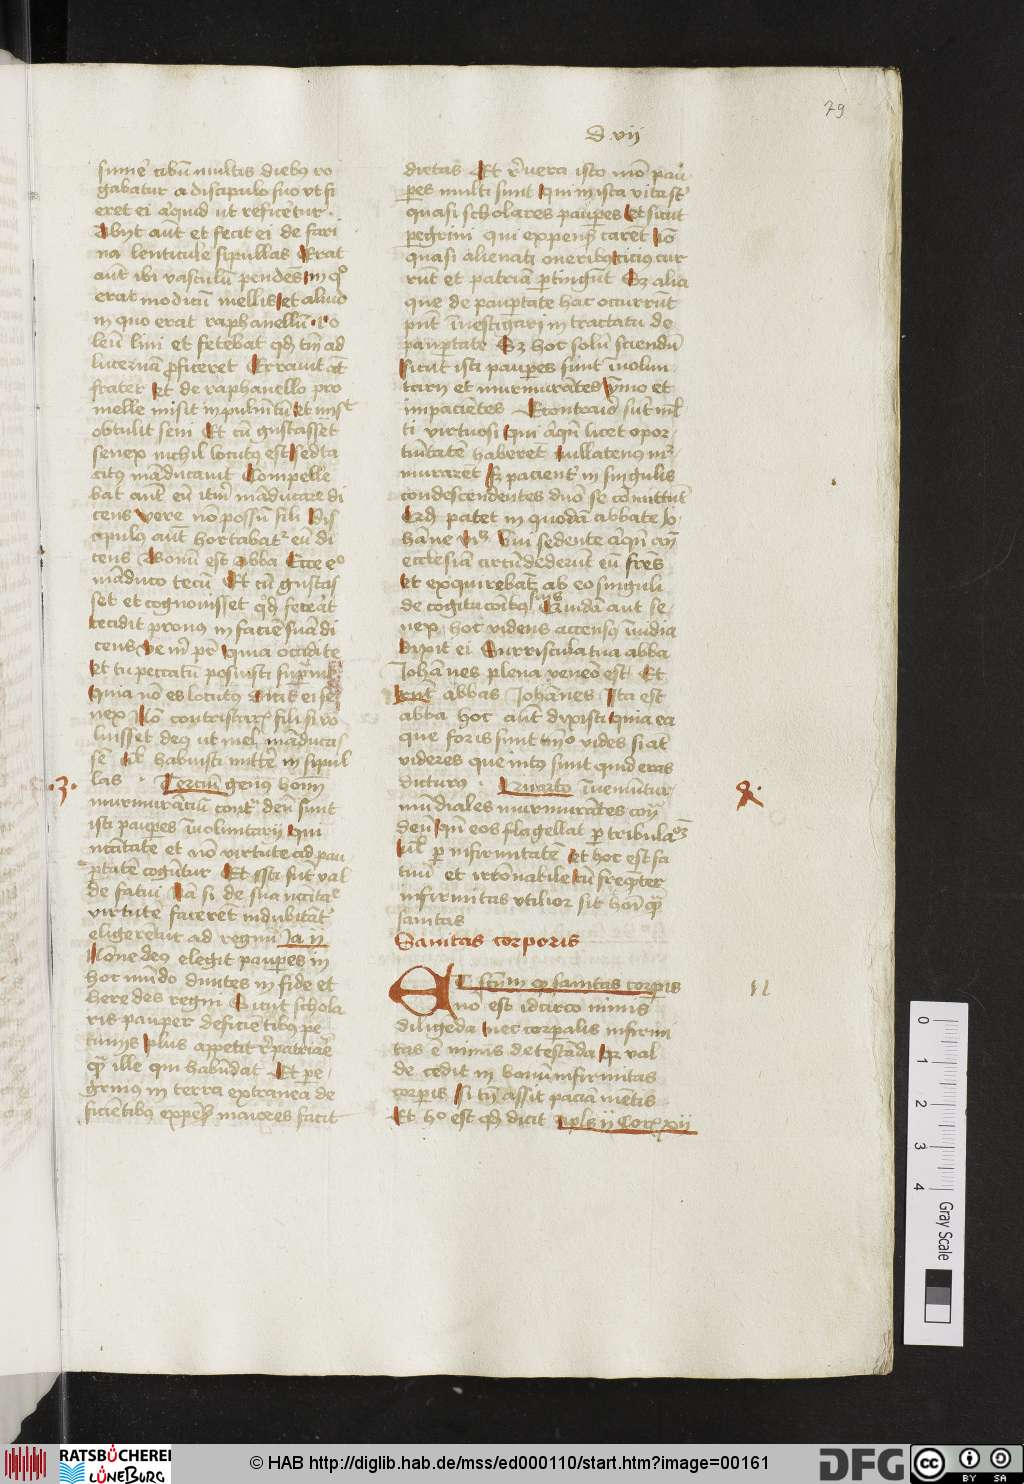 79
d vii
sume͛ cibū multis dieb9 ro
gabatur a discipulo suo vt fi
eret ei aͥquid ut reficeͤtur
Abijt aūt et fecit ei de fari
na lenticule sipullas Erat
aūt ibi vasculū pendēs in qͦ
erat modicū mellis et aliud
in quo erat raphanellū
leū lini et fetebat qd tm̄ ad
lucernā ꝓficeret Errauit
frater et de raphanello pro
melle misit in pulmtū et
obtulit seni Et cū gustasset
senex nichil locutꝰ est sed ta
citꝰ māducauit Compelle
bat aūt eū itm̄ māducare di
cens vere nō possū fili Dis
cipulꝰ aūt hortabat᷑ eū di
cens Bonū est abba Ecce eͦ
māduco tecū Et cū gustas
set et cognouisset qd feceāt
cecidit pronꝰ in faciē suā di
cens ve m̄ pr̄ quia occidite
et tu peccatū posuisti
quia nō es locutꝰ ei se
nex Nō contristar᷑ fili si vo
luisset deꝰ ut mel māducas
sē habuisti mitte͛ in sipul
las Tercium genꝰ hoīm
.3.
murmurātiū cont͛ deū sunt
isti paupes īuoluntarij qui
nccitate et nō virtute ad pau
ꝑtatē cogūtur Et isti sūt val
de fatui Nā si de sua nccitate
virtute faceret indubitāt͛
eligeretur ad regnū Ja ij
Nōne deꝰ elegit paupes in
hoc mūdo diuites in fide et
heredes regni Sicut schola
ris pauper deficiētibꝰ pe
cunijs plus appetit rͤpatriare
qͣ ille qui habūdat Et pe
grinus in terra extranea de
ficiētibꝰ expēs maiores facit
dietas Et rͤvera isto mō pau
peres multi sunt qui in ista vita st̄
quasi scholares paupes et sicut
pegrini qui expens carēt
quasi alienati oneribꝰ cicius cur
rūt et patriā ꝑtingūt Sz alia
que de paupertate hac occurrūt
pnt īuestigari in tractatu de
paupertate Sz hoc solū sciendū
sicut isti paupes sunt īuolun
tarij et murmurātes ymo et
impacientes Econtraͥo sūt ml̄
ti virtuosi qui aͥqn̄ licet opor
tūitatē haberēt nullatenꝰ mͬ
murarēt Sz pacient᷑ in singulis
condescendentes duō se cōmittūt
Sꝛd patet in quodā abbate Jo
hāne Vn sedente aͥqn̄ an̄
ecclesiā circūdederūt eū fr̄es
et exquirebāt ab eo singuli
de cogitacōibꝰ suis Quidā aūt se
nex hoc videns accensꝰ īuidia
dixit ei Curriscula tua abba
Johānes plena venēo est Et
abbas Johānes Ita est
abba hoc aūt dixisti quia ea
que foris sunt mō vides si at̄
videres que intꝰ sunt quid eras
dicturꝰ Quarto īueniūtur
4.
mūdiales murmurātes cont͛
deū qn̄ eos flagellat ꝑ tribulacōꝫ
ul̄ ꝑ infirmitatē Et hoc est fa
tuū et irrōnabile cū freqn̄ter
infirmitas vtilior sit hoī qͣ
sanitas
Sanitas corporis
Est sciēdum qꝫ sanitas corpis
nō est idcirco nimis
diligēda nec corpalis infirmi
tas ē nimis detestāda qꝛ val
de cedit in bonū infirmitas
corpis si tn̄ assit paciā mētis
Et hͦ est qd dicit apls ij Cor᷑ xij
0
1
2
3
4
Gray Scale
RATSBÜCHEREI
LÜNEBURG
© HAB http://diglib.hab.de/mss/ed000110/start.htm?image=00161
DFG
cc
BY
SA